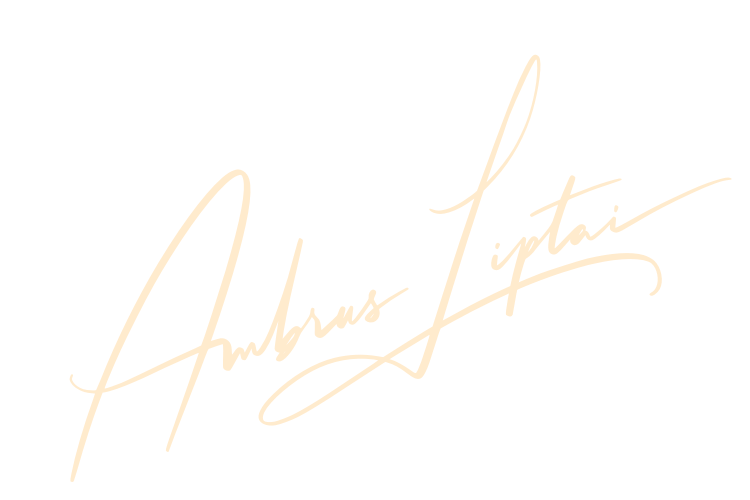 Ambrus Liptai